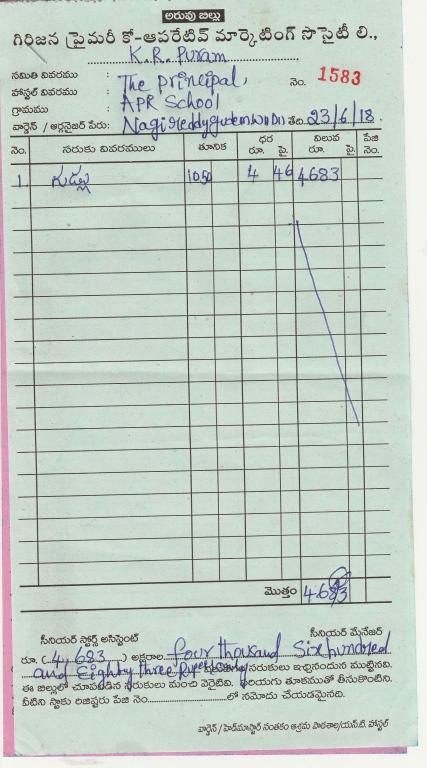 అరువు బిల్లు
గిరిజన ప్రైమరీ కో-ఆపరేటివ్ మార్కెటింగ్ సొసైటీ లి.,
K.R. Puram
సమితి వివరము : The principal, నెం. 1583
హాస్టల్ వివరము : APR School
గ్రామము :
వార్డెన్ / ఆర్గనైజర్ పేరు: Nagireddygudem తేది. 23/6/18.
నెం. సరుకు వివరములు తూనిక ధర రూ. పై. విలువ రూ. పై. పేజి నెం.
1. గుడ్లు 1050 4 46 4683
మొత్తం 4683
సీనియర్ స్టోర్సు అసిస్టెంట్ సీనియర్ మేనేజర్
రూ. (4,683) అక్షరాల four thousand Six hundred
and Eighty three rupees only విలువగల సరుకులు ఇచ్చినందున ముట్టినవి.
ఈ బిల్లులో చూపబడిన సరుకులు మంచి వెరైటివి. సరియగు తూకముతో తీసుకొంటిని.
వీటిని స్టాకు రిజిష్టరు పేజి నెం..................లో నమోదు చేయడమైనది.
వార్డెన్ / హెడ్‌మాష్టార్ సంతకం ఆశ్రమ పాఠశాల/యస్.టి. హాస్టల్